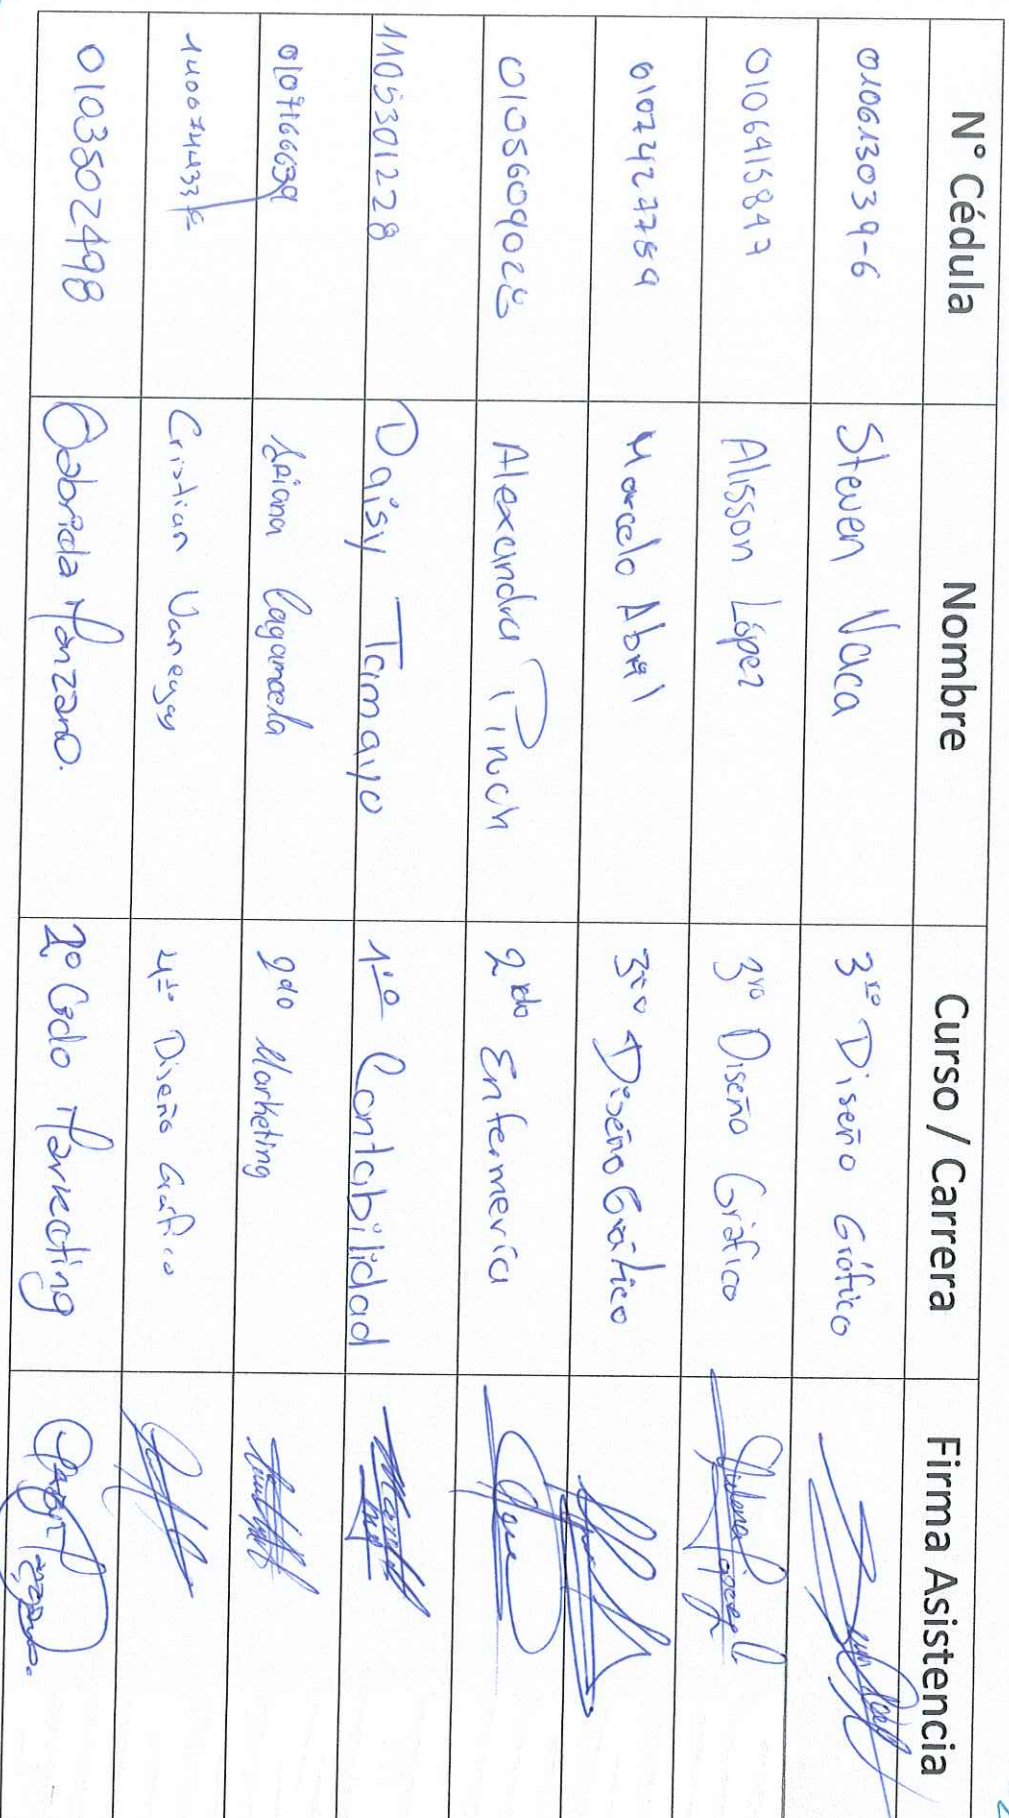 N° Cédula Nombre Curso / Carrera Firma Asistencia
010613039-6 Steven Vaca 3ro Diseño Gráfico
0106415847 Alisson López 3ro Diseño Gráfico
0107427759 Marcelo Abril 3ro Diseño Gráfico
0105609028 Alexandra 2ndo Enfermería
1105301228 Daisy Tamayo 1ro Contabilidad
0107166639 2do Marketing
Cristian Vanegas 4to Diseño Gráfico
0103502498 Gabriela Manzano. 2º Ciclo Marketing